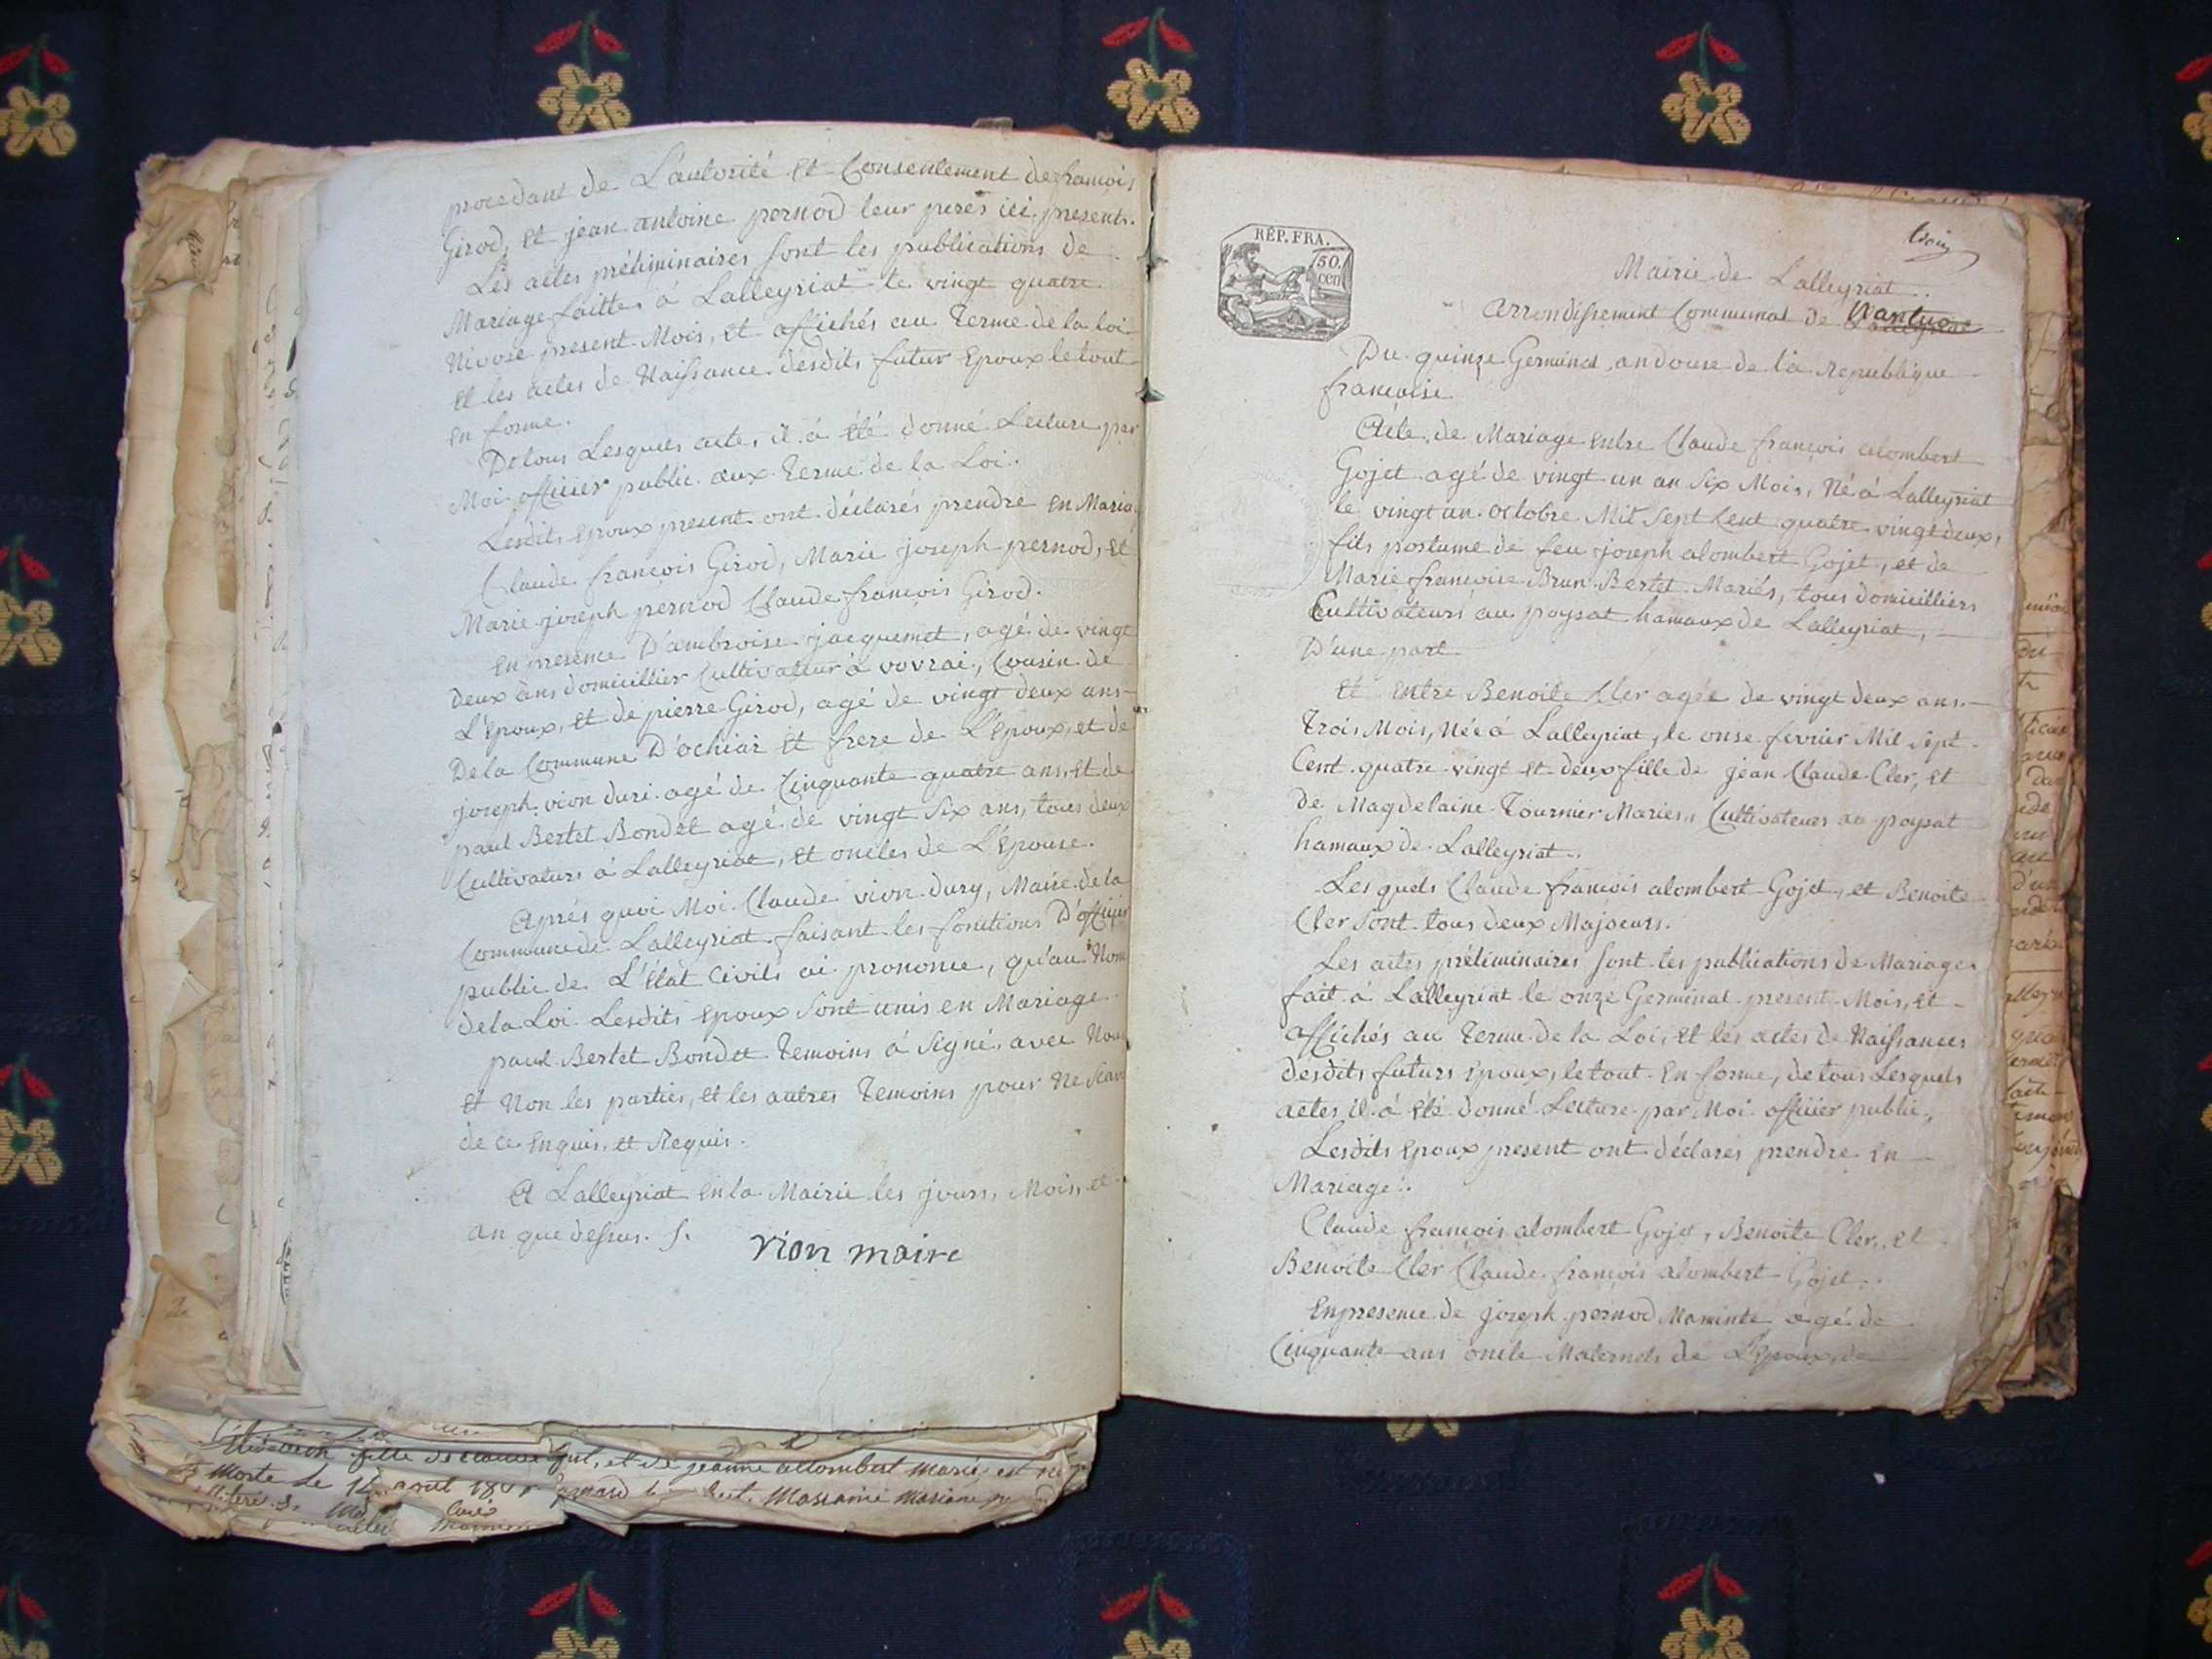 procedant de L'autorité et Consentement de francois
Girod, et jean antoine pernod leur peres ici presents.
Les actes préliminaires sont les publications de
Mariage faittes à Lalleyriat le vingt quatre
Nivose present Mois, et affichés au Terme de la loi
et les actes de Naissance desdits futur Epoux le tout
en forme.
De tous Lesquels acte, il à été donné Lecture par
Moi officier public aux Terme de la Loi.
Lesdits Epoux present ont déclarés prendre en Mariage
Claude francois Girod, Marie joseph pernod, et
Marie joseph pernod Claude francois Girod.
En presence D'ambroise jacquemet, agé de vingt
deux ans domicillier Cultivateur à vovrai, Cousin de
L'Epoux, et de pierre Girod, agé de vingt deux ans
De la Commune D'ochiaz et frere de L'Epoux, et de
joseph vion duri agé de Cinquante quatre ans, et de
paul Bertet Bondet agé de vingt six ans, tous deux
Cultivaturs à Lalleyriat, et oncles de L'Epouse.
Après quoi Moi Claude vion dury, Maire de la
Commune de Lalleyriat faisant les fonctions D'officier
public de L'état Civils ai prononce, qu'au Nom
de la Loi Lesdits Epoux sont unis en Mariage
paul Bertet Bondet Temoins à signé avec Nous
et Non les parties, et les autres Temoins pour ne scav
de ce Enquis et Requis.
A Lalleyriat en la Mairie les jours, Mois, et
an que dessus. s.
vion maire
fille de claude et de jeanne allombert marié est
Morte Le avril
REP. FRA.
50.
cen
Mairie de Lalleyriat
arrondissement Communal de Nantua
Du quinze Germinal, an douse de la Republique
francaise
Acte de Mariage entre Claude francois alombert
Gojet agé de vingt un an six Mois, Né à Lalleyriat
le vingt un octobre Mil sept Cent quatre vingt deux,
fils postume de feu joseph alombert Gojet, et de
Marie francoise Brun Bertet Mariés, tous domicilliers
Cultivateurs au poysat hamaux de Lalleyriat,
D'une part
Et entre Benoite Cler agée de vingt deux ans
Trois Mois, Née à Lalleyriat, le onse fevrier Mil sept
Cent quatre vingt et deux fille de jean Claude Cler, et
de Magdelaine Tournier Maries, Cultivateurs au poysat
hamaux de Lalleyriat.
Les quels Claude francois alombert Gojet, et Benoite
Cler sont tous deux Majeurs.
Les actes préliminaires sont les publications de Mariage
fait à Lalleyriat le onze Germinal present Mois, et
affichés au Terme de la Loi, et les actes de Naissances
desdits futurs Epoux, le tout en forme, de tous Lesquels
actes il à été donné Lecture par Moi officier public,
Lesdits Epoux present ont déclarés prendre en
Mariage.
Claude francois alombert Gojet, Benoite Cler, et
Benoite Cler Claude francois alombert Gojet.
En presence de joseph pernod Maminte agé de
Cinquante ans oncle Maternels de L'Epoux, de